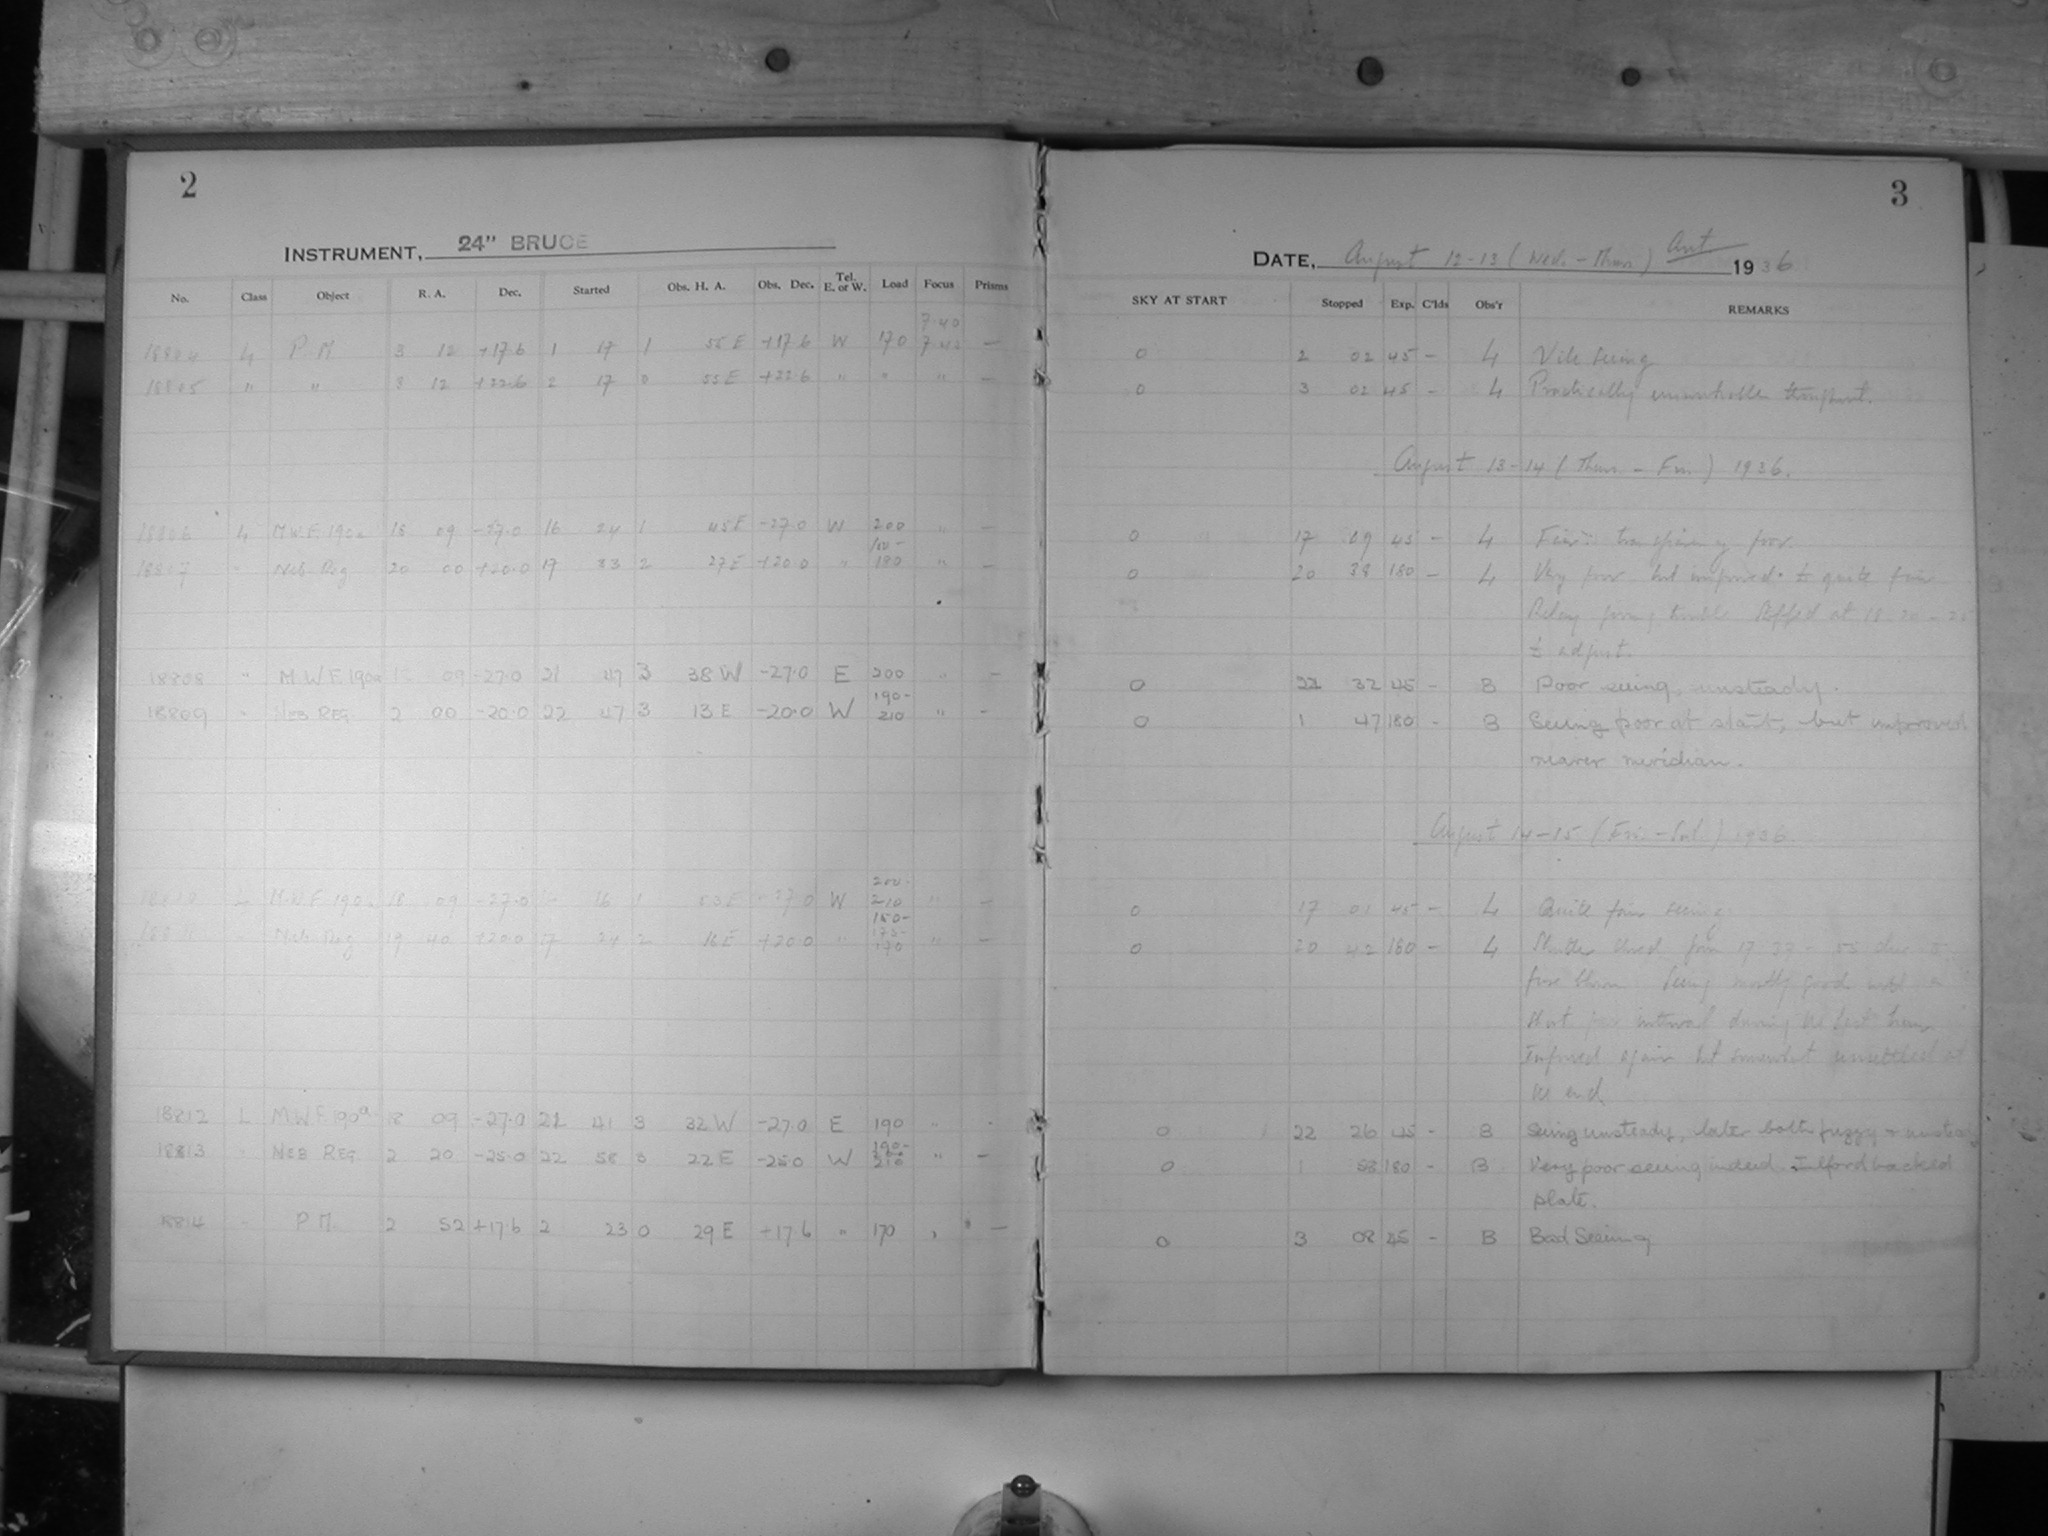 2
INSTRUMENT, 24" BRUCE
No. Class Object R. A. Dec. Started Obs. H. A. Obs. Dec. Tel. E. or W. Load Focus Prisms
7.40
18804 L PM 3 12 +17.6 1 17 1 55 E +17.6 W 170 7.42 —
18805 " " 3 12 +22.6 2 17 0 55 E +22.6 " " " —
18806 L M.W.F. 190a 18 09 -27.0 16 24 1 45 E -27.0 W 200 " —
18807 Neb. Reg 20 00 +20.0 17 33 2 27 E +20.0 " 180 " —
18808 " M.W.F. 190a 18 09 -27.0 21 47 3 38 W -27.0 E 200 " —
190-
18809 " NEB REG. 2 00 -20.0 22 47 3 13 E -20.0 W 210 " —
200-
M.W.F. 190a 18 09 -27.0 16 1 53 E -27.0 W 210 " —
150-
175-
Neb. Reg 19 40 +20.0 17 24 2 16 E +20.0 " 170 " —
18812 L M.W.F. 190a 18 09 -27.0 21 41 3 32 W -27.0 E 190 "
190-
18813 " NEB REG. 2 20 -25.0 22 58 3 22 E -25.0 W 210 " —
18814 " PM 2 52 +17.6 2 23 0 29 E +17.6 " 170 —
3
DATE, August 12-13 (Wed. - Thur.) 1936
SKY AT START Stopped Exp. C'lds Obs'r REMARKS
0 2 02 45 — L Vile seeing
0 3 02 45 — L Practically unworkable throughout.
August 13-14 (Thur. - Fri.) 1936.
0 17 09 45 — L Fair: transparency poor.
0 20 38 180 — L Very poor but improved to quite fair
Relay giving trouble. Stopped at 18 20 - 25
to adjust.
0 22 32 45 — B Poor seeing, unsteady.
0 1 47 180 - B Seeing poor at start, but improved
nearer meridian.
August 14-15 (Fri. - Sat.) 1936
0 17 01 45 — L Quite fair seeing
0 20 42 180 — L Shutter closed from 17 37 - 55 due to
fuse blown. Seeing mostly good with a
short poor interval during the last hour.
Improved again but somewhat unsettled at
the end
0 22 26 45 — B Seeing unsteady, later both fuzzy & unsteady
0 1 58 180 — B Very poor seeing indeed. Ilford backed
plate.
0 3 08 45 — B Bad Seeing